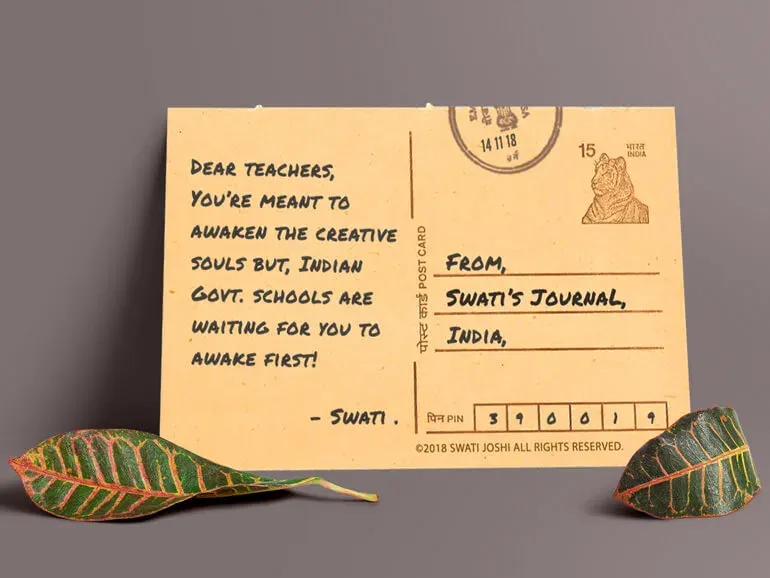 DEAR TEACHERS,
YOU'RE MEANT TO
AWAKEN THE CREATIVE
SOULS BUT, INDIAN
GOVT. SCHOOLS ARE
WAITING FOR YOU TO
AWAKE FIRST!
- SWATI .
पोस्ट कार्ड POST CARD
14 11 18
15 भारत
INDIA
FROM,
SWATI'S JOURNAL,
INDIA,
पिन PIN 3 9 0 0 1 9
©2018 SWATI JOSHI ALL RIGHTS RESERVED.